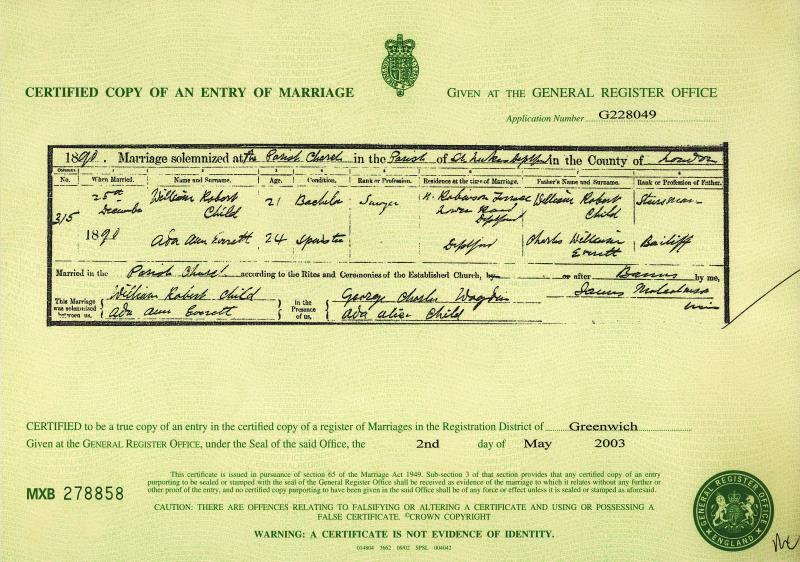 CERTIFIED COPY OF AN ENTRY OF MARRIAGE
GIVEN AT THE GENERAL REGISTER OFFICE
Application Number G228049
1890. Marriage solemnized at the Parish Church in the Parish of St Lukes Deptford in the County of London
No. When Married. Name and Surname. Age. Condition. Rank or Profession. Residence at the time of Marriage. Father's Name and Surname. Rank or Profession of Father.
315 25th December 1890
William Robert Child 21 Bachelor Robinson Terrace Lower Road Deptford William Robert Child
Ada Ann Everett 24 Spinster Deptford Charles William Everitt Bailiff
Married in the Parish Church according to the Rites and Ceremonies of the Established Church, by or after Banns by me,
This Marriage was solemnized between us,
William Robert Child
Ada Ann Everett
in the Presence of us,
George Charles
Ada Alice Child
James
CERTIFIED to be a true copy of an entry in the certified copy of a register of Marriages in the Registration District of Greenwich
Given at the GENERAL REGISTER OFFICE, under the Seal of the said Office, the 2nd day of May 2003
This certificate is issued in pursuance of section 65 of the Marriage Act 1949. Sub-section 3 of that section provides that any certified copy of an entry
purporting to be sealed or stamped with the seal of the General Register Office shall be received as evidence of the marriage to which it relates without any further or
other proof of the entry, and no certified copy purporting to have been given in the said Office shall be of any force or effect unless it is sealed or stamped as aforesaid.
MXB 278858
CAUTION: THERE ARE OFFENCES RELATING TO FALSIFYING OR ALTERING A CERTIFICATE AND USING OR POSSESSING A
FALSE CERTIFICATE. ©CROWN COPYRIGHT
WARNING: A CERTIFICATE IS NOT EVIDENCE OF IDENTITY.
014804 3662 08/02 SPSL 004042
GENERAL REGISTER OFFICE
ENGLAND